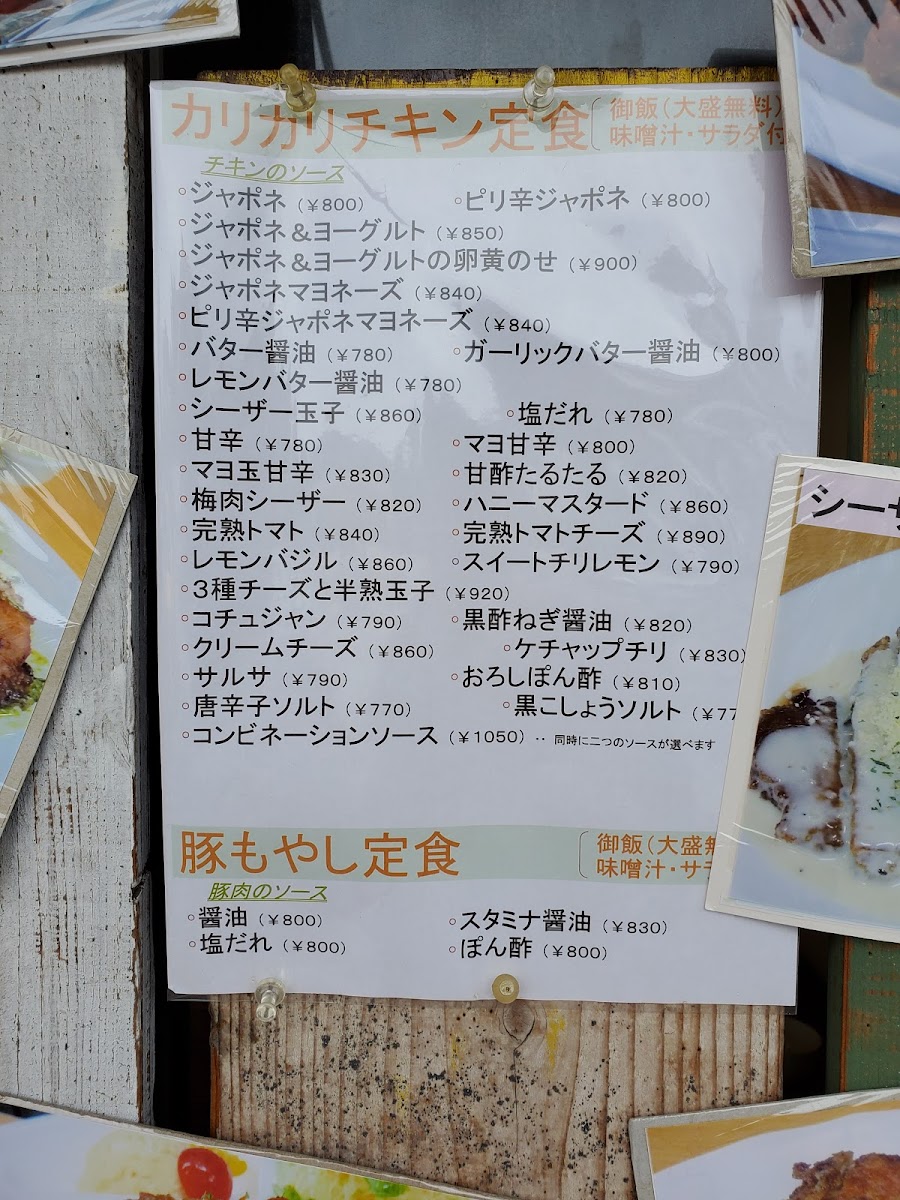 カリカリチキン定食
御飯（大盛無料）
味噌汁・サラダ付
チキンのソース
○ジャポネ（￥800） ○ピリ辛ジャポネ（￥800）
○ジャポネ＆ヨーグルト（￥850）
○ジャポネ＆ヨーグルトの卵黄のせ（￥900）
○ジャポネマヨネーズ（￥840）
○ピリ辛ジャポネマヨネーズ（￥840）
○バター醤油（￥780） ○ガーリックバター醤油（￥800）
○レモンバター醤油（￥780）
○シーザー玉子（￥860） ○塩だれ（￥780）
○甘辛（￥780） ○マヨ甘辛（￥800）
○マヨ玉甘辛（￥830） ○甘酢たるたる（￥820）
○梅肉シーザー（￥820） ○ハニーマスタード（￥860）
○完熟トマト（￥840） ○完熟トマトチーズ（￥890）
○レモンバジル（￥860） ○スイートチリレモン（￥790）
○３種チーズと半熟玉子（￥920）
○コチュジャン（￥790） ○黒酢ねぎ醤油（￥820）
○クリームチーズ（￥860） ○ケチャップチリ（￥830）
○サルサ（￥790） ○おろしぽん酢（￥810）
○唐辛子ソルト（￥770） ○黒こしょうソルト（￥77
○コンビネーションソース（￥1050）‥ 同時に二つのソースが選べます
豚もやし定食
御飯（大盛無
味噌汁・サラ
豚肉のソース
○醤油（￥800） ○スタミナ醤油（￥830）
○塩だれ（￥800） ○ぽん酢（￥800）
シーサ